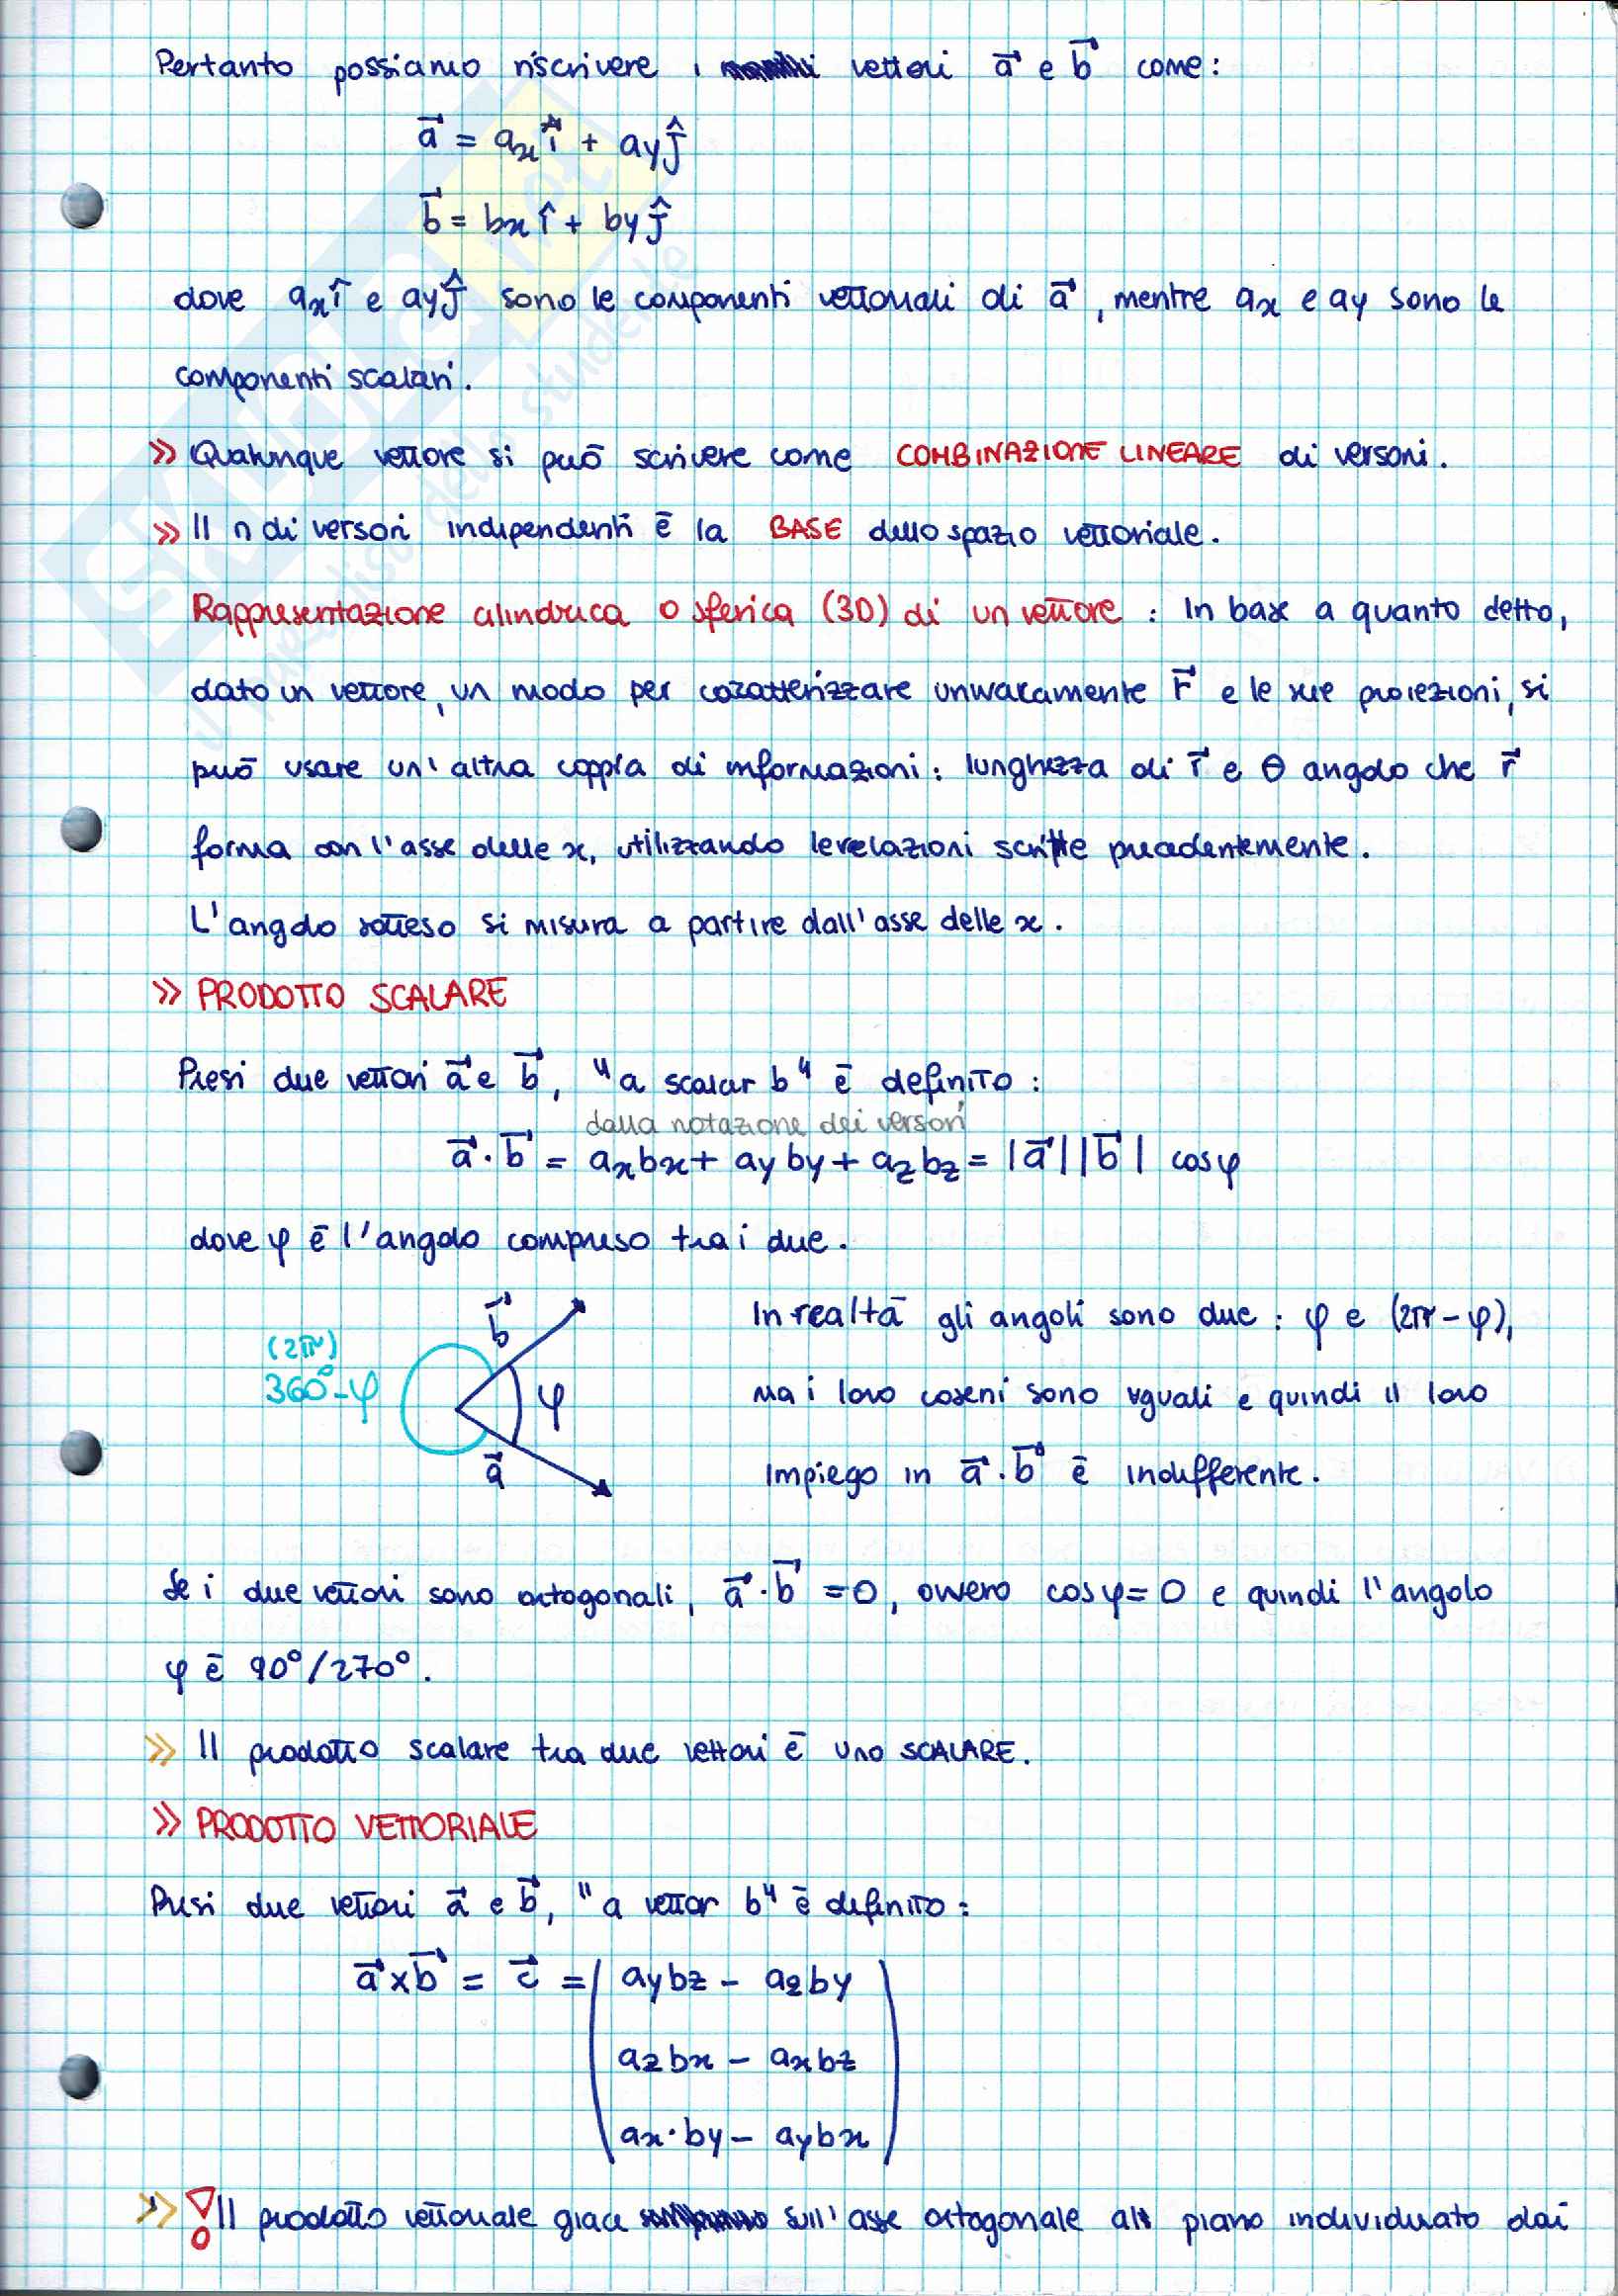 Pertanto possiamo riscrivere i vettori a⃗ e b⃗ come:
a⃗ = axî + ayĵ
b⃗ = bxî + byĵ
dove axî e ayĵ sono le componenti vettoriali di a⃗, mentre ax e ay sono le
componenti scalari.
» Qualunque vettore si può scrivere come COMBINAZIONE LINEARE di versori.
» Il n di versori indipendenti è la BASE dello spazio vettoriale.
Rappresentazione cilindrica o sferica (3D) di un vettore: In base a quanto detto,
dato un vettore, un modo per caratterizzare univocamente r⃗ e le sue proiezioni, si
può usare un'altra coppia di informazioni: lunghezza di r⃗ e θ angolo che r⃗
forma con l'asse delle x, utilizzando le relazioni scritte precedentemente.
L'angolo sotteso si misura a partire dall'asse delle x.
» PRODOTTO SCALARE
Presi due vettori a⃗ e b⃗, "a scalar b" è definito:
dalla notazione dei versori
a⃗·b⃗ = axbx + ayby + azbz = |a⃗||b⃗| cosφ
dove φ è l'angolo compreso tra i due.
b⃗
(2π)
360°-φ
φ
a⃗
In realtà gli angoli sono due: φ e (2π-φ),
ma i loro coseni sono uguali e quindi il loro
impiego in a⃗·b⃗ è indifferente.
Se i due vettori sono ortogonali, a⃗·b⃗ = 0, ovvero cosφ=0 e quindi l'angolo
φ è 90°/270°.
» Il prodotto scalare tra due vettori è uno SCALARE.
» PRODOTTO VETTORIALE
Presi due vettori a⃗ e b⃗, "a vettor b" è definito:
a⃗×b⃗ = c⃗ = ( aybz - azby
azbx - axbz
ax·by - aybx )
» ! Il prodotto vettoriale giace sull'asse ortogonale al piano individuato dai
SKUOLA.net
il paradiso dello studente